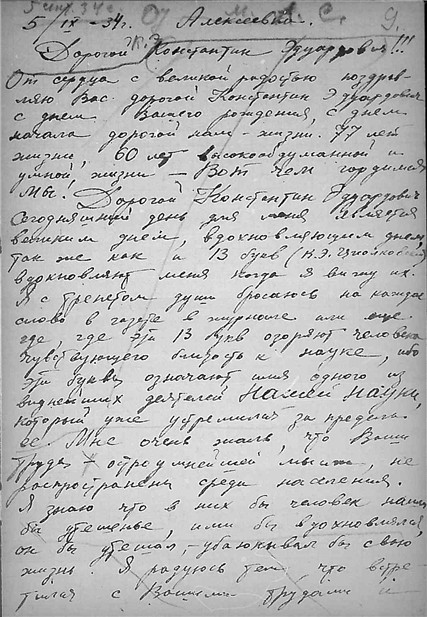 5/IX-34г. Алексеевка.
9.
Дорогой Константин Эдуардович!!!
От сердца с великой радостью поздрав-
ляю Вас дорогой Константин Эдуардович
с днем Вашего рождения, с днем
начала дорогой нам - жизни. 77 лет
жизни, 60 лет высокообдуманной и
умной жизни - Вот чем гордимся
мы. Дорогой Константин Эдуардович
Сегодняшний день для меня является
великим днем, вдохновляющим днем,
так же как и 13 букв (К.Э.Циолковский)
вдохновляют меня когда я вижу их.
Я с трепетом души бросаюсь на каждое
слово в газете в журнале или еще
где, где эти 13 букв озоряют человека
чувствующего близость к науке, ибо
эти буквы означают имя одного из
виднейших деятелей нашей науки,
который уже устремился за предела
ее. Мне очень жаль, что Ваши
труды - остроумнейшей мысли, не
распространены среди населения.
Я знаю что в них бы человек нашел
бы утешенье, ими бы вдохновлялся,
он бы утешал, - убаюкивал бы свою
жизнь. Я радуюсь тем, что встре-
тился с Вашими трудами и